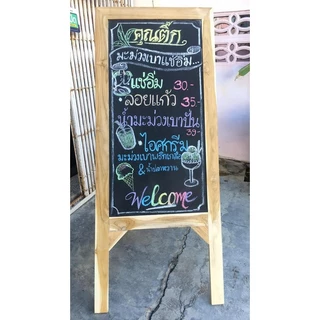 คุณติ๊ก
มะม่วงเบาแช่อิ่ม...
แช่อิ่ม 30.-
• ลอยแก้ว 35.-
น้ำมะม่วงเบาปั่น
35.-
• ไอศกรีม
มะม่วงเบาพริกเกลือ
& น้ำปลาหวาน
Welcome